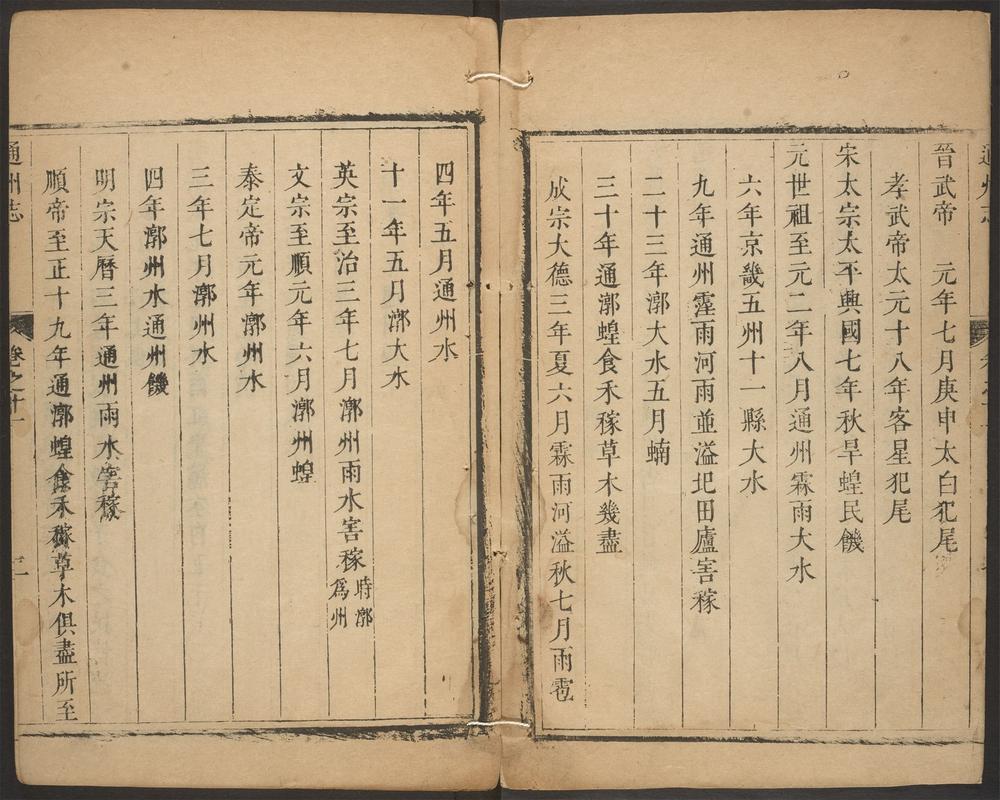 晉武帝　元年七月庚申太白犯尾
孝武帝太元十八年客星犯尾
宋太宗太平興國七年秋旱蝗民饑
元世祖至元二年八月通州霖雨大水
六年京畿五州十一縣大水
九年通州霪雨河雨並溢圯田廬害稼
二十三年漷大水五月蝻
三十年通漷蝗食禾稼草木幾盡
成宗大德三年夏六月霖雨河溢秋七月雨雹
四年五月通州水
十一年五月漷大水
英宗至治三年七月漷州雨水害稼時漷爲州
文宗至順元年六月漷州蝗
泰定帝元年漷州水
三年七月漷州水
四年漷州水通州饑
明宗天曆三年通州雨水害稼
順帝至正十九年通漷蝗食禾稼草木俱盡所至
通州志　卷之十一